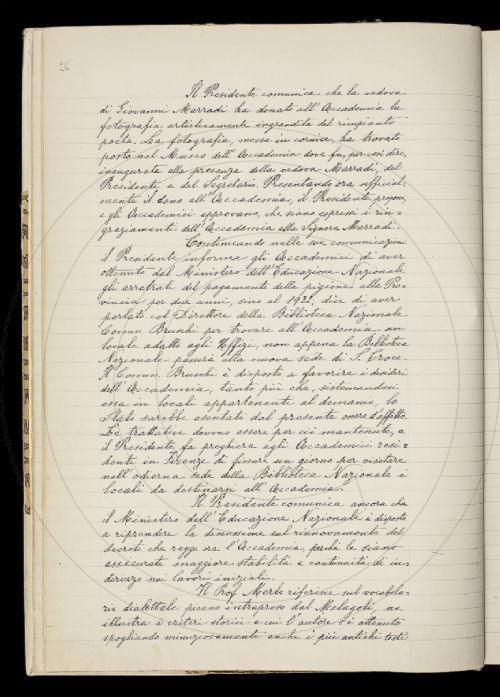 26
Il Presidente comunica che la vedova
di Giovanni Marradi ha donato all'Accademia la
fotografia artisticamente ingrandita del rimpianto
poeta. La fotografia, messa in cornice, ha trovato
posto nel Museo dell'Accademia dove fu, per così dire,
inaugurata alla presenza della vedova Marradi, del
Presidente, e del Segretario. Presentando ora ufficial=
mente il dono all'Accademia, il Presidente propone,
e gli Accademici approvano, che siano espressi i rin=
graziamenti dell'Accademia alla Signora Marradi.
Continuando nelle sue comunicazioni
il Presidente informa gli Accademici di aver
ottenuto dal Ministero dell'Educazione Nazionale
gli arretrati del pagamento della pigione alla Pro=
vincia per due anni, sino al 1932, dice di aver
parlato col Direttore della Biblioteca Nazionale
Comm. Bruschi per trovare all'Accademia un
locale adatto agli Uffizi, non appena la Biblioteca
Nazionale passerà alla nuova sede di S. Croce.
Il Comm. Bruschi è disposto a favorire i desideri
dell'Accademia, tanto più che, sistemandosi
essa in locali appartenenti al demanio, lo
Stato sarebbe esentato dal presente onere d'affitto.
Le trattative devono essere per ciò mantenute, e
il Presidente fa preghiera agli Accademici resi=
denti in Firenze di fissare un giorno per visitare
nell'odierna sede della Biblioteca Nazionale i
locali da destinarsi all'Accademia.
Il Presidente comunica ancora che
il Ministero dell'Educazione Nazionale è disposto
a riprendere la discussione sul rinnovamento del
decreto che regge ora l'Accademia, perché le siano
assicurate maggiore stabilità e continuità di in=
dirizzo nei lavori iniziali.
Il Prof. Merlo riferisce sul vocabola=
rio dialettale pisano intrapreso dal Malagoli, ne
illustra i criteri storici a cui l'autore s'è attenuto
spogliando minuziosamente anche i più antichi testi